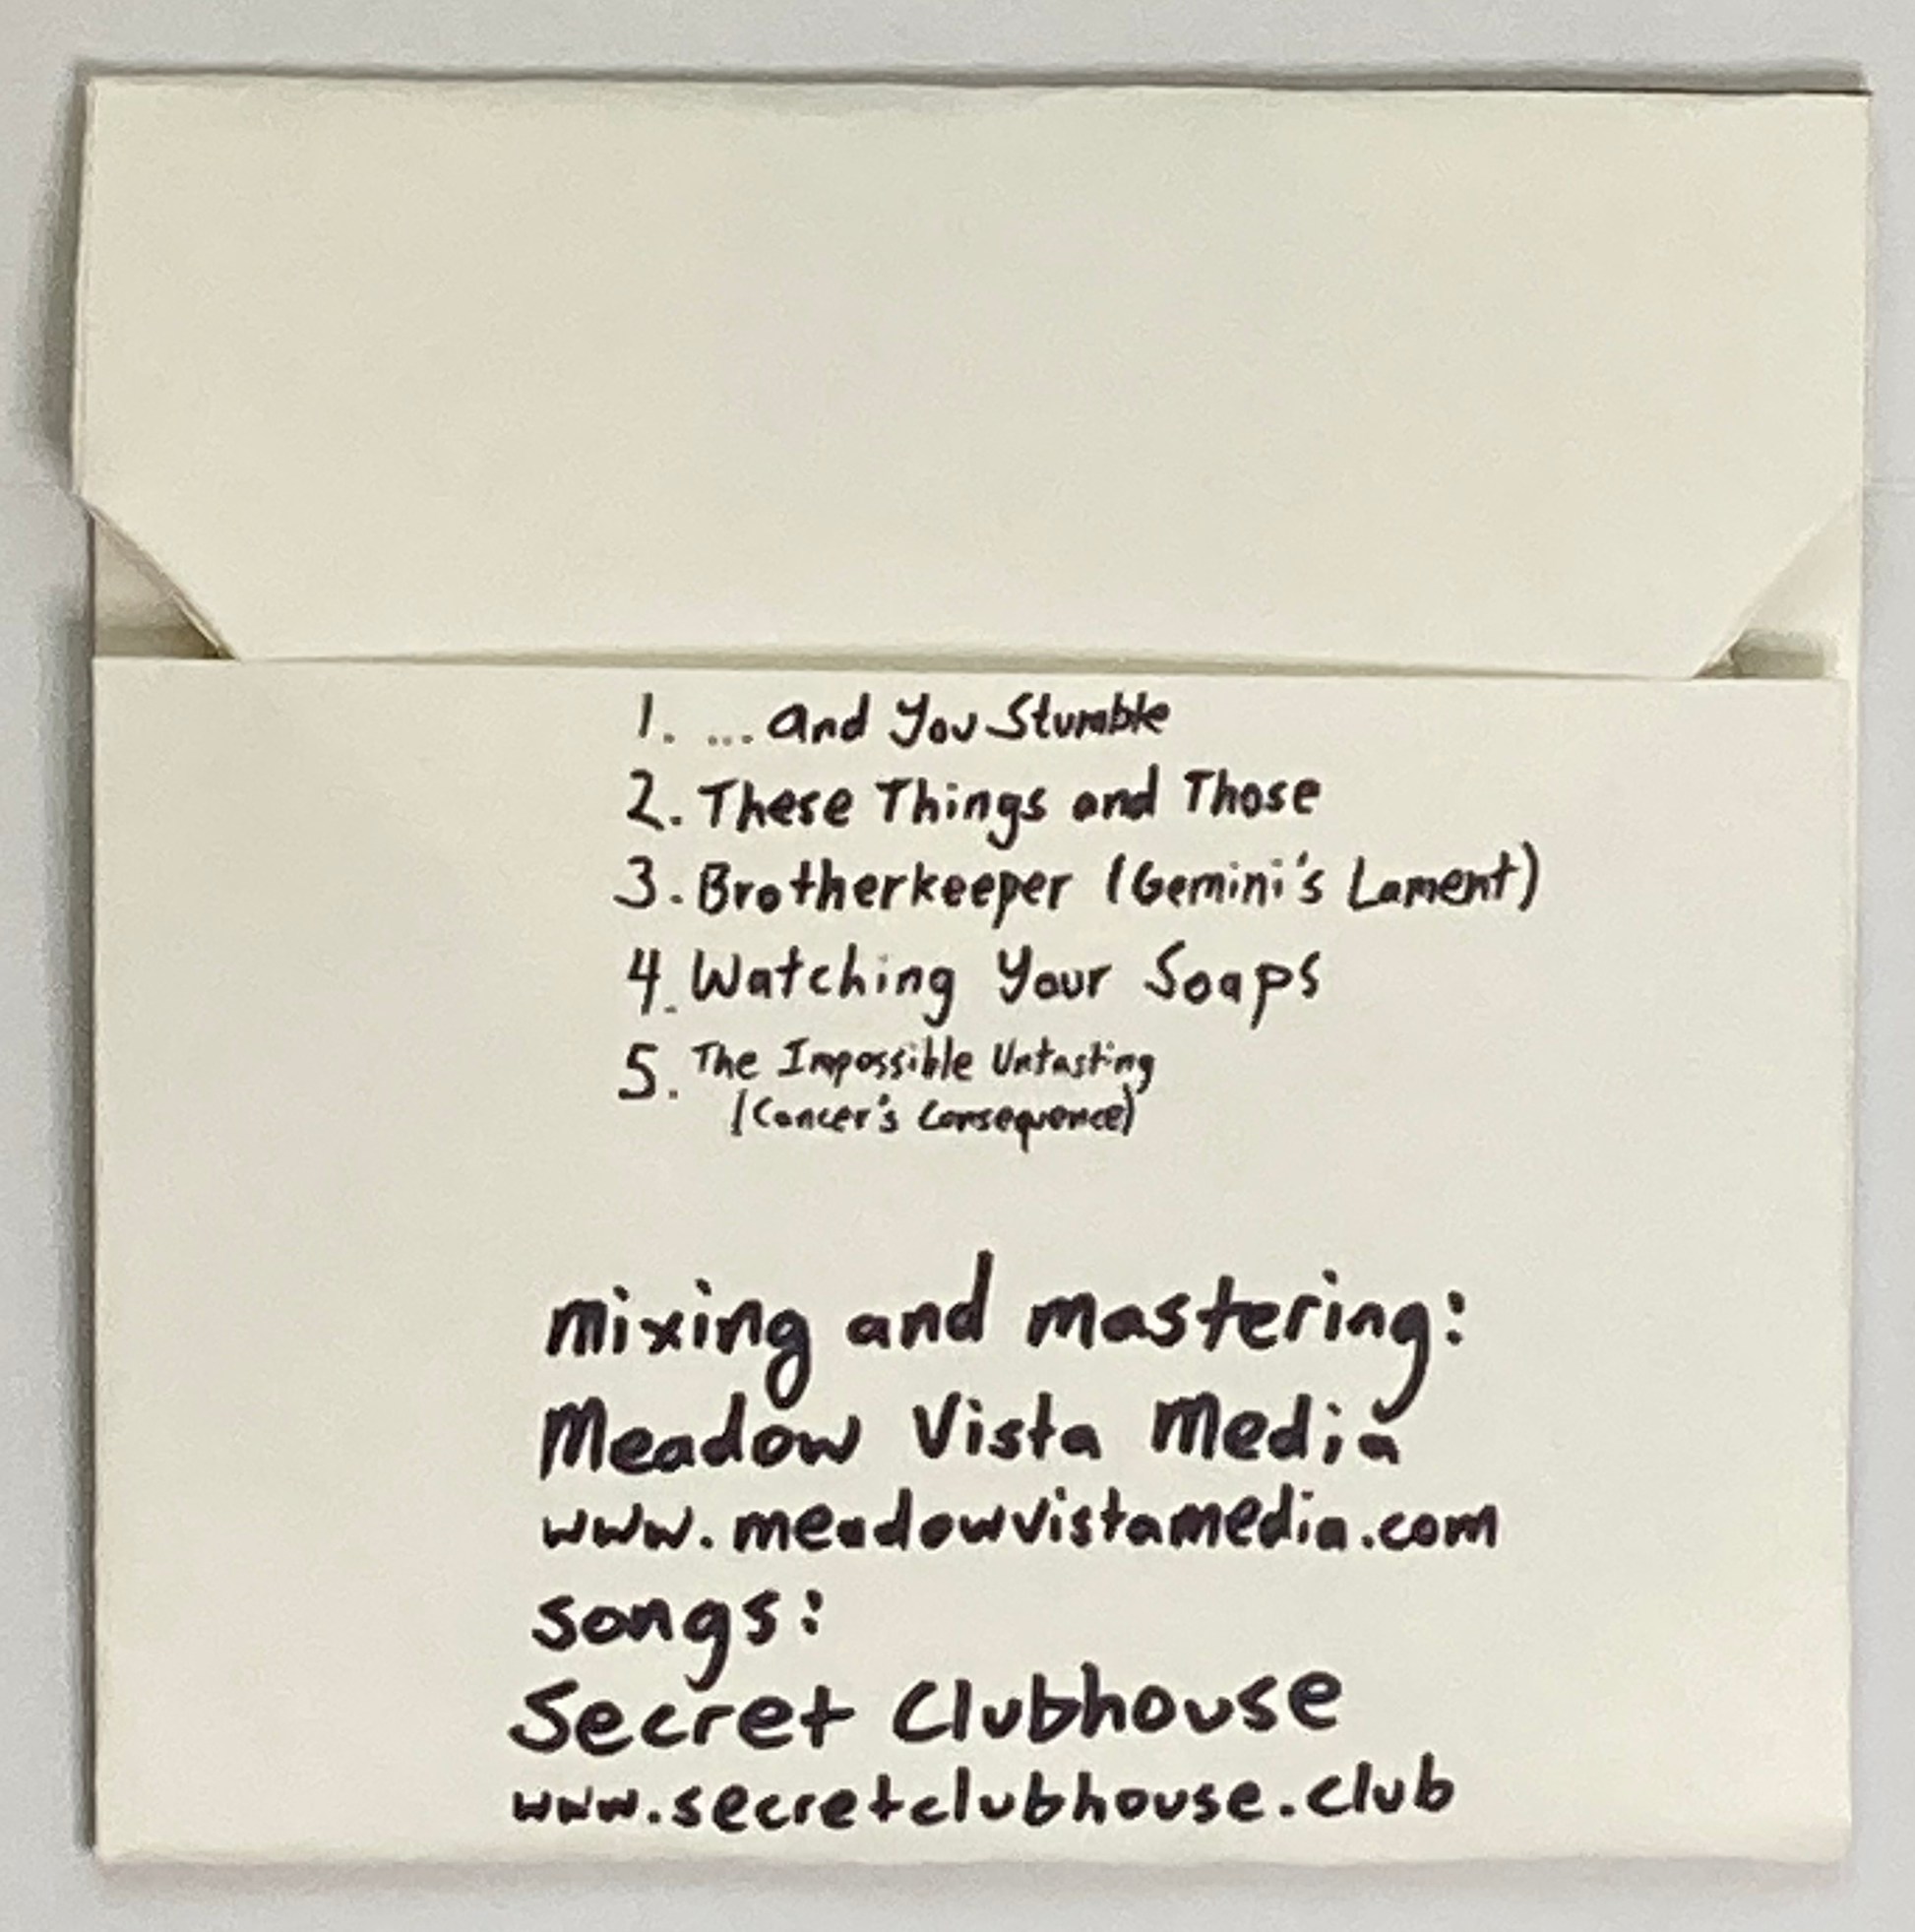 1. ... And You Stumble
2. These Things and Those
3. Brotherkeeper (Gemini's Lament)
4. Watching Your Soaps
5. The Impossible Untasting
(Cancer's Consequence)
mixing and mastering:
Meadow Vista Media
www.meadowvistamedia.com
songs:
Secret Clubhouse
www.secretclubhouse.club